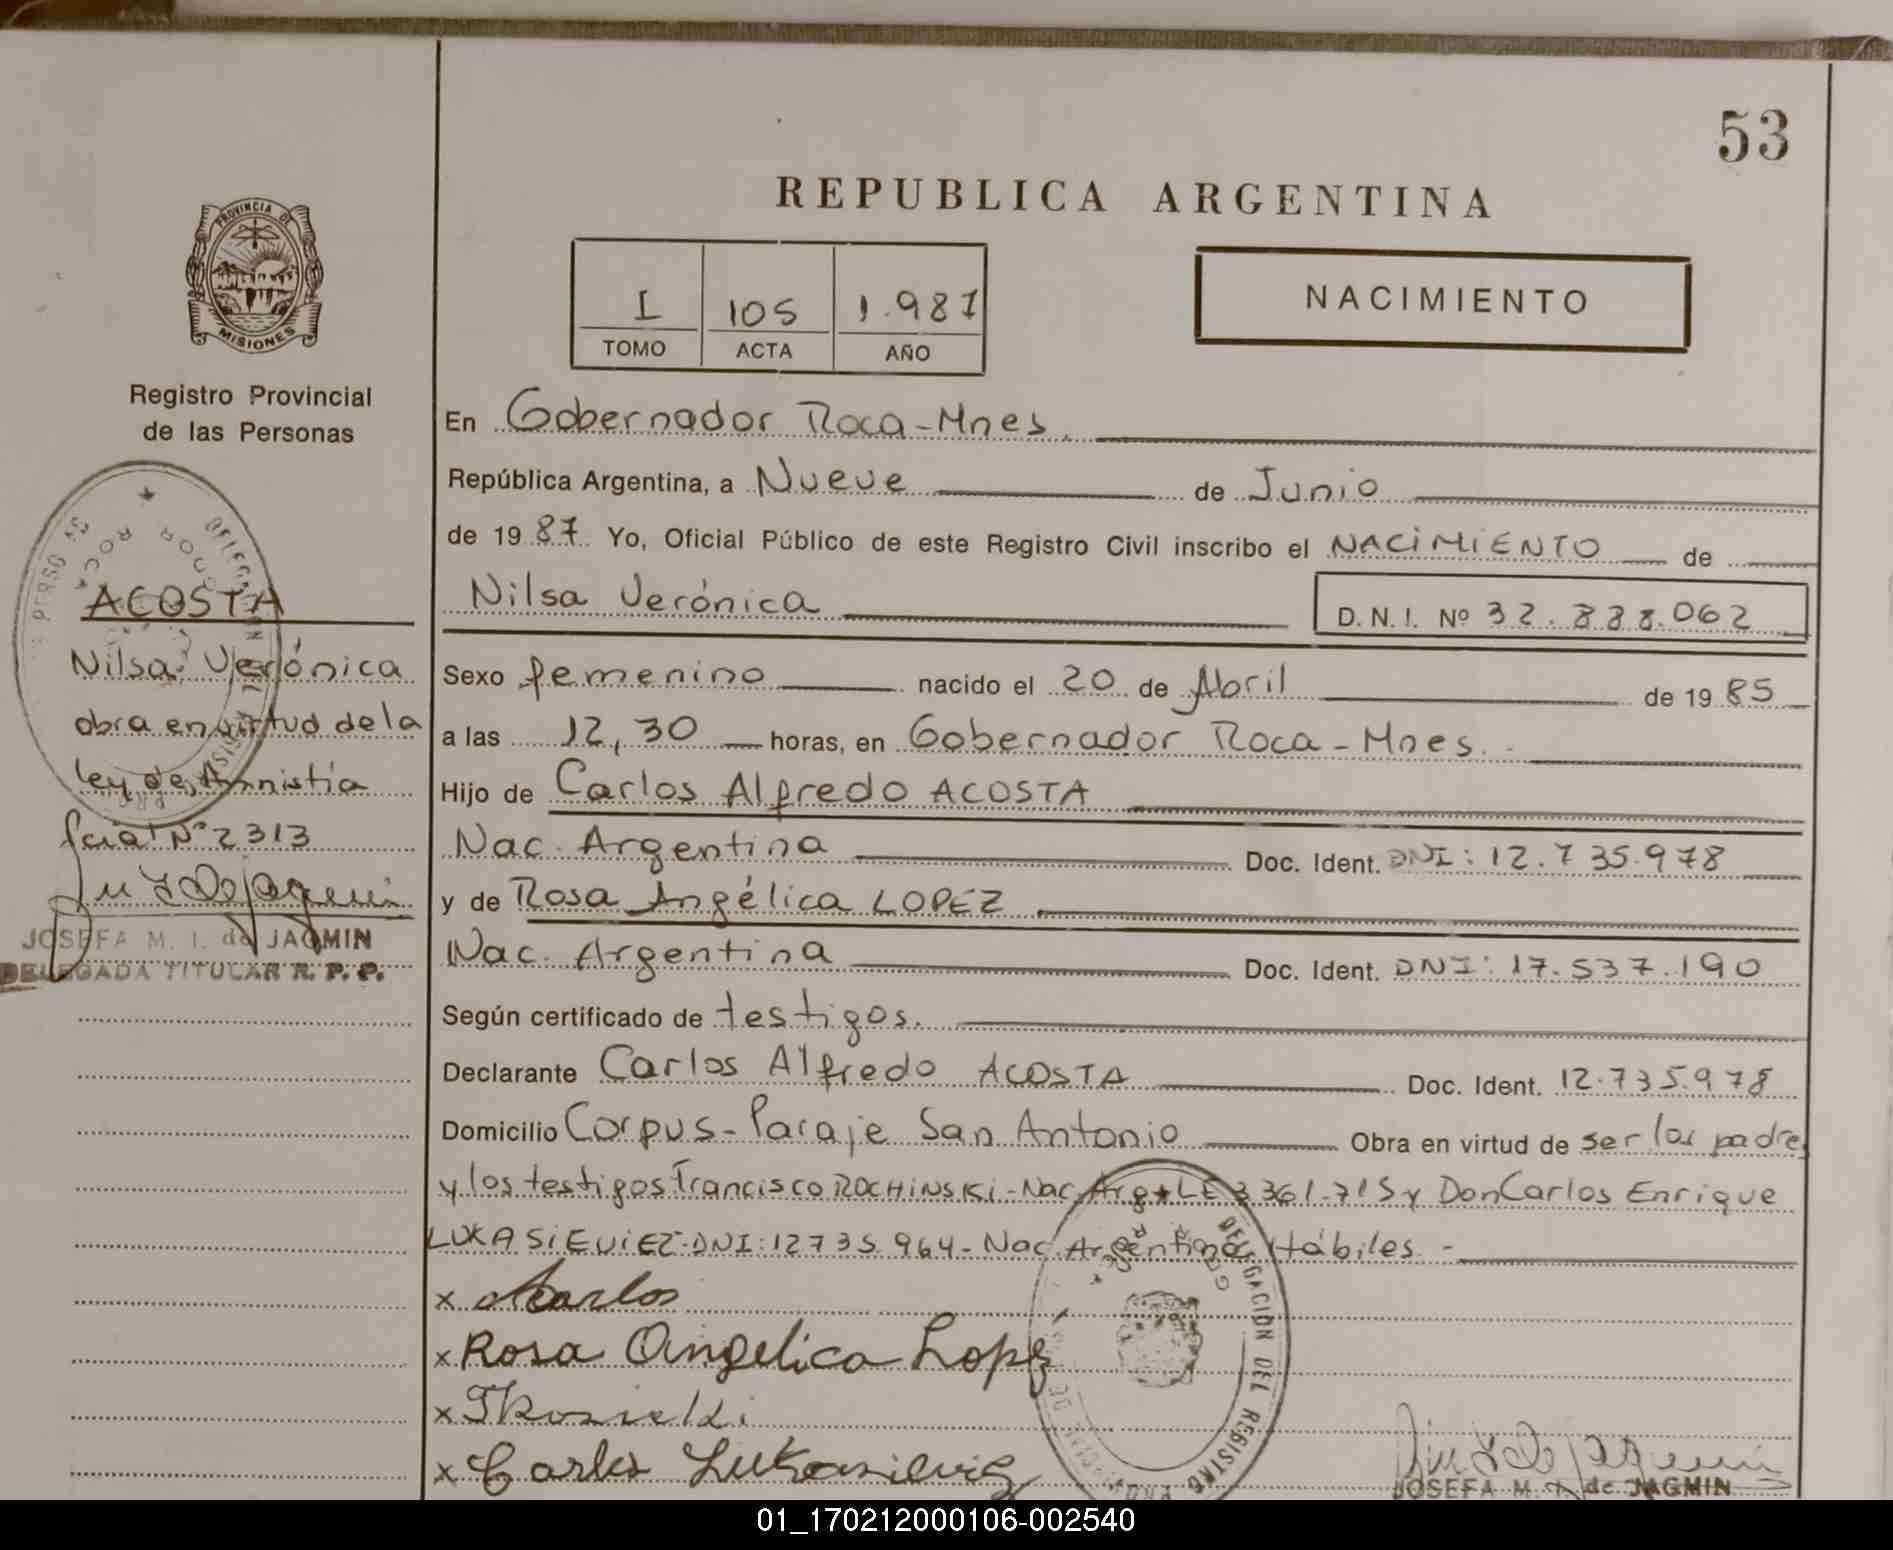 53
REPUBLICA ARGENTINA
PROVINCIA DE
MISIONES
I 105 1.987
TOMO ACTA AÑO
NACIMIENTO
Registro Provincial
de las Personas
En Gobernador Roca-Mnes.
República Argentina, a Nueve de Junio
de 19 87 Yo, Oficial Público de este Registro Civil inscribo el NACIMIENTO de
Nilsa Verónica
D. N. I. Nº 32.888.062
ACOSTA
Nilsa Verónica
obra en virtud de la
ley de Amnistía
Nº 2313
JOSEFA M. I. de JAGMIN
DELEGADA TITULAR R. P. P.
Sexo femenino nacido el 20 de Abril de 19 85
a las 12,30 horas, en Gobernador Roca-Mnes.
Hijo de Carlos Alfredo ACOSTA
Nac. Argentina Doc. Ident. DNI: 12.735.978
y de Rosa Angélica LOPEZ
Nac. Argentina Doc. Ident. DNI: 17.537.190
Según certificado de testigos.
Declarante Carlos Alfredo ACOSTA Doc. Ident. 12.735.978
Domicilio Corpus-Paraje San Antonio Obra en virtud de ser los padres
y los testigos Francisco ROCHINSKI-Nac. Arg LE 3361.715 y Don Carlos Enrique
LUKASIEVIEZ-DNI: 12735.964-Nac. Argentina Hábiles.-
x Acarlos
x Rosa Angelica Lopez
x
x Carlos
DELEGACION DEL REGISTRO
JOSEFA M. I. de JAGMIN
01_170212000106-002540